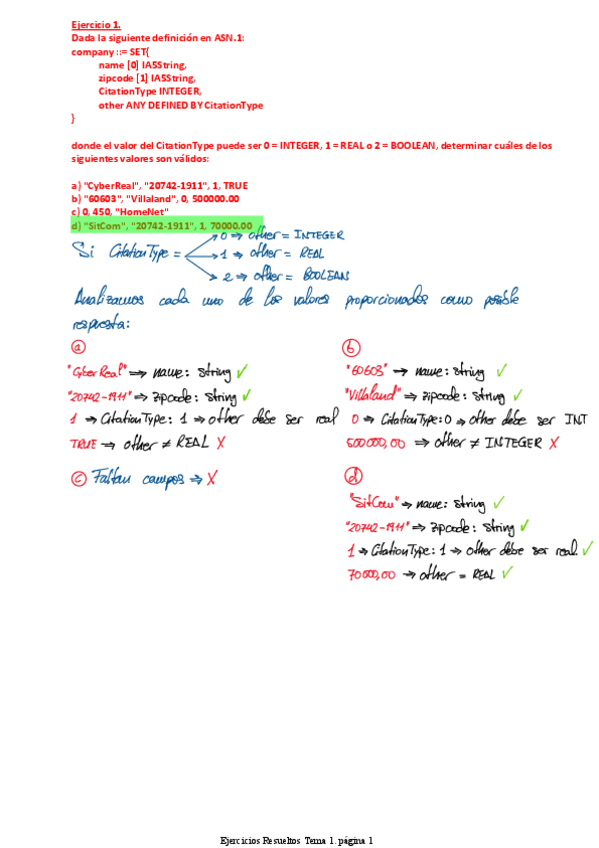 Ejercicio 1.
Dada la siguiente definición en ASN.1:
company ::= SET{
name [0] IA5String,
zipcode [1] IA5String,
CitationType INTEGER,
other ANY DEFINED BY CitationType
}
donde el valor del CitationType puede ser 0 = INTEGER, 1 = REAL o 2 = BOOLEAN, determinar cuáles de los
siguientes valores son válidos:
a) "CyberReal", "20742-1911", 1, TRUE
b) "60603", "Villaland", 0, 500000.00
c) 0, 450, "HomeNet"
d) "SitCom", "20742-1911", 1, 70000.00
0 ⇒ other = INTEGER
Si CitationType = 1 ⇒ other = REAL
2 ⇒ other = BOOLEAN
Analizamos cada uno de los valores proporcionados como posible
respuesta:
a
"CyberReal" ⇒ name: string ✓
"20742-1911" ⇒ zipcode: string ✓
1 ⇒ CitationType: 1 ⇒ other debe ser real
TRUE ⇒ other ≠ REAL X
c Faltan campos ⇒ X
b
"60603" ⇒ name: string ✓
"Villaland" ⇒ zipcode: string ✓
0 ⇒ CitationType: 0 ⇒ other debe ser INT
500000,00 ⇒ other ≠ INTEGER X
d
"SitCom" ⇒ name: string ✓
"20742-1911" ⇒ zipcode: string ✓
1 ⇒ CitationType: 1 ⇒ other debe ser real ✓
70000,00 ⇒ other = REAL ✓
Ejercicios Resueltos Tema 1. página 1